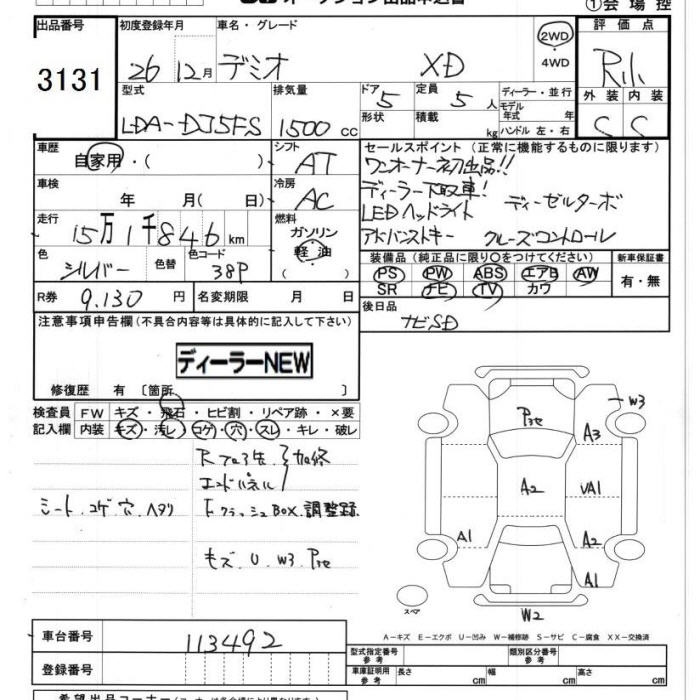 ①会場控
出品番号 初度登録年月 車名・グレード 評価点
3131 26 12月 デミオ XD 2WD・4WD R
型式 排気量 ドア 5 定員 5人 ディーラー・並行 外装 内装
LDA-DJ5FS 1500cc 形状 積載 kg モデル年式 年 ハンドル 左・右 C C
車歴 シフト セールスポイント(正常に機能するものに限ります)
自家用・( ) AT ワンオーナー初出品!!
車検 冷房 ディーラー下取車!
年 月( 日) AC LEDヘッドライト ディーゼルターボ
走行 燃料 アドバンストキー クルーズコントロール
15万1千846km ガソリン・軽油
色 シルバー 色替 色コード 38P 装備品(純正品に限り○をつけてください) 新車保証書
PS PW ABS エアB AW 有・無
R券 9.130円 名変期限 月 日 SR ナビ TV カワ
注意事項申告欄(不具合内容等は具体的に記入して下さい) 後日品
ナビSD
ディーラーNEW
修復歴 有〔箇所 〕
検査員 FW キズ・飛石・ヒビ割・リペア跡・×要
記入欄 内装 キズ・汚レ・コゲ・穴・スレ・キレ・破レ
加修
エンドパネル
シート.コゲ.穴.ヘタリ
クラッシュBOX.調整跡
キズ.U.W3.P3セ
P3セ
W3
A3
A2
VA1
A1
A2
A1
W2
スペア
A-キズ E-エクボ U-凹み W-補修跡 S-サビ C-腐食 XX-交換済
車台番号 113492
型式指定番号 参考 類別区分番号 参考
登録番号 車庫証明用 参考 長さ cm 幅 cm 高さ cm